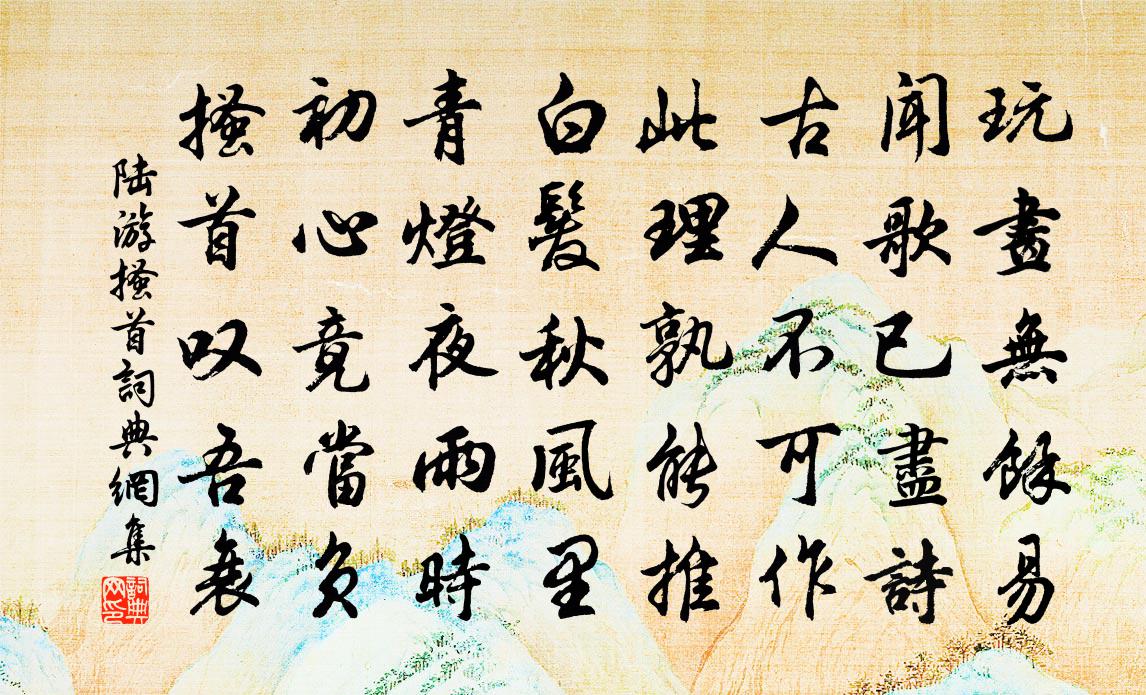 玩畫無餘易
闻歌已盡詩
古人不可作
此理孰能推
白髮秋風里
青燈夜雨時
初心竟當負
搔首叹吾衰
陆游搔首詞典網集